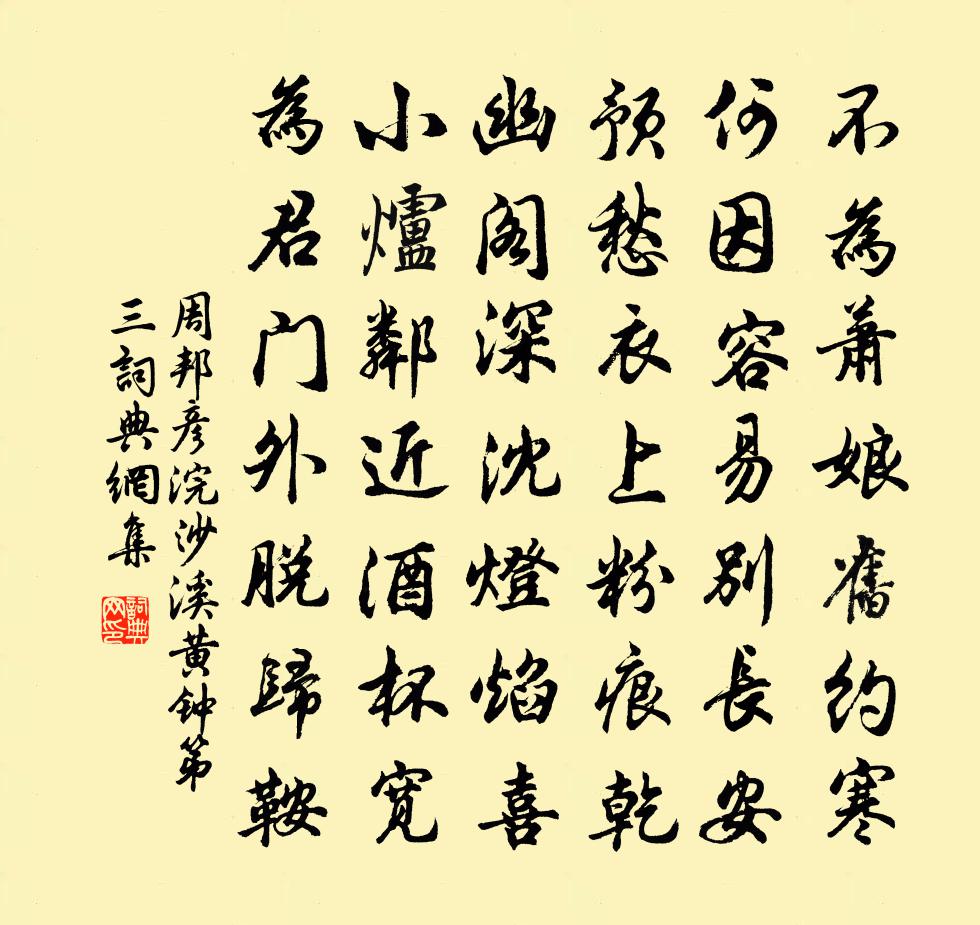 不為蕭娘舊約寒
何因容易別長安
預愁衣上粉痕乾
幽閣深沈燈焰喜
小爐鄰近酒杯寬
為君門外脫歸鞍
周邦彥浣沙溪黃鐘第
三詞典網集
詞典
网印